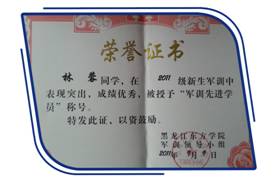 荣誉证书
林蓉同学，在2011级新生军训中
表现突出，成绩优秀，被授予“军训先进学
员”称号。
特发此证，以资鼓励。
黑龙江东方学院
军训领导小组
2011年9月 日